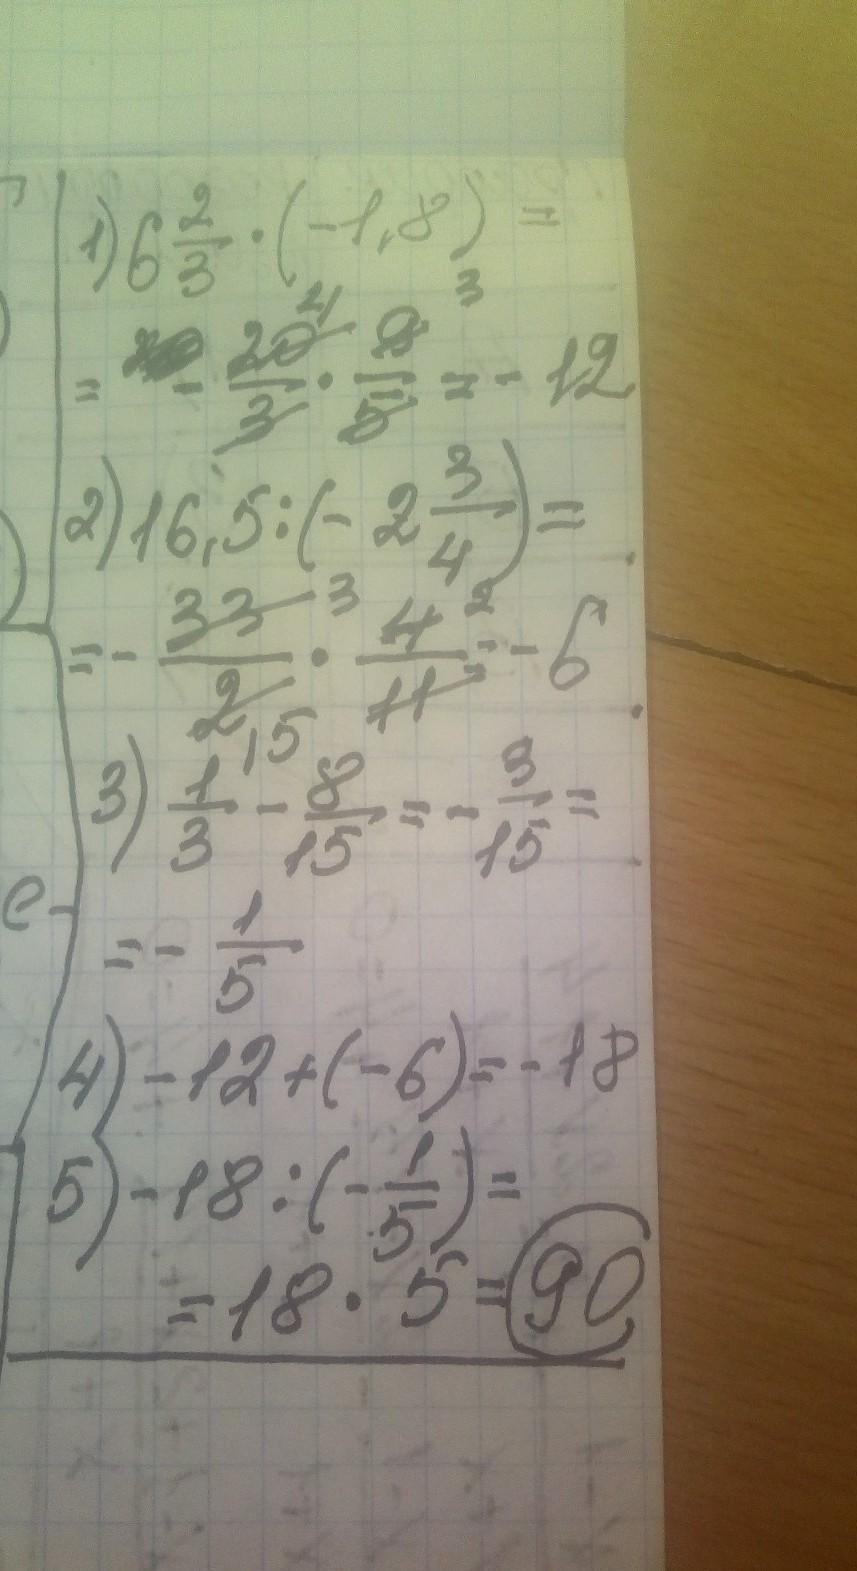 1) 6 2/3 · (-1,8) =
= - 20/3 4 · 9/5 3 = - 12
2) 16,5 : (- 2 3/4) =
= - 33/2 3 · 4/11 2 = - 6
3) 1/3 ,5 - 8/15 = - 3/15 =
= - 1/5
4) - 12 + (- 6) = - 18
5) - 18 : (- 1/5) =
= 18 · 5 = 90